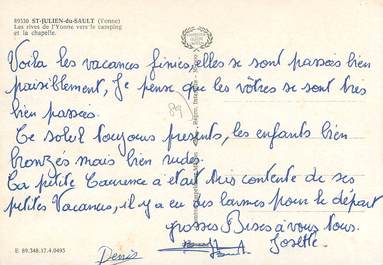 89330 ST-JULIEN-du-SAULT (Yonne)
Les rives de l'Yonne vers le camping
et la chapelle.
Voila les vacances finies, elles se sont passées bien
paisiblement, Je pense que les vôtres se sont très
bien passées.
Le soleil toujours présents, les enfants bien
bronzés mais bien rudes.
La petite Laurence a était très contente de ses
petites Vacances, il y a eu des larmes pour le départ
grosses Bises à vous Tous.
Josette.
Denis
89
E 89.348.17.4.0495